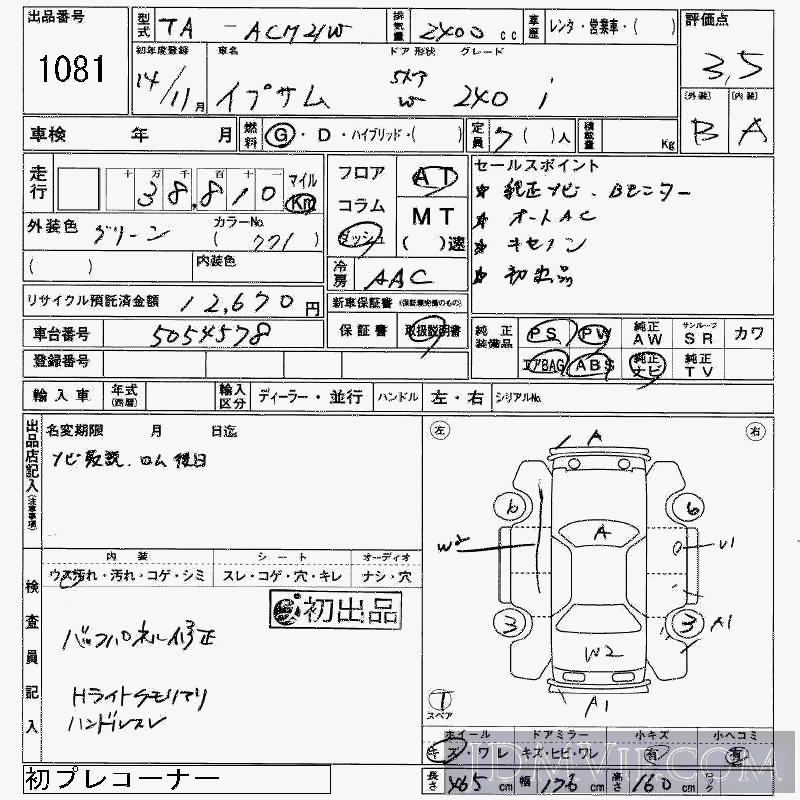 出品番号 1081
型式 TA - ACM21W 排気量 2400 cc 車歴 レンタ・営業車・( )
評価点 3,5
初年度登録 14/11月 車名 イプサム ドア形状 5ドア W グレード 240 i
(外装) B (内装) A
車検 年 月 燃料 G・D・ハイブリッド・( ) 定員 7( )人 積載量 Kg
走行 十 万 千 百 十 一 38,810 マイル Km
フロア コラム ダッシュ AT MT ( )速
セールスポイント
★ 純正ナビ・Bモニター
★ オートAC
★ キセノン
★ 初出品
外装色 グリーン カラーNo. ( 771 )
( ) 内装色
冷房 AAC
リサイクル預託済金額 12,670円
新車保証書 (保証継承完備のもの)
保証書 取扱説明書
車台番号 5054578
登録番号
純正装備品 PS PW 純正AW サンルーフSR カワ
エアBAG ABS 純正ナビ 純正TV
輸入車 年式(西暦) 輸入区分 ディーラー・並行 ハンドル 左・右 シリアルNo.
出品店記入(注意事項)
名変期限 月 日迄
ナビ取説、ロム後日
左 右
A
6 6
A
W2 U1
3 3 A1
W2
A1
1
スペア
検査員記入
内装 シート オーディオ
ウス汚れ・汚れ・コゲ・シミ スレ・コゲ・穴・キレ ナシ・穴
初出品
バックパネル修正
Hライトクモリアリ
ハンドルスレ
ホイール ドアミラー 小キズ 小ヘコミ
キズ・ワレ キズ・ヒビ・ワレ 有 有
初プレコーナー
長さ 465 cm 幅 176 cm 高さ 160 cm ロック
JDMVIP.COM